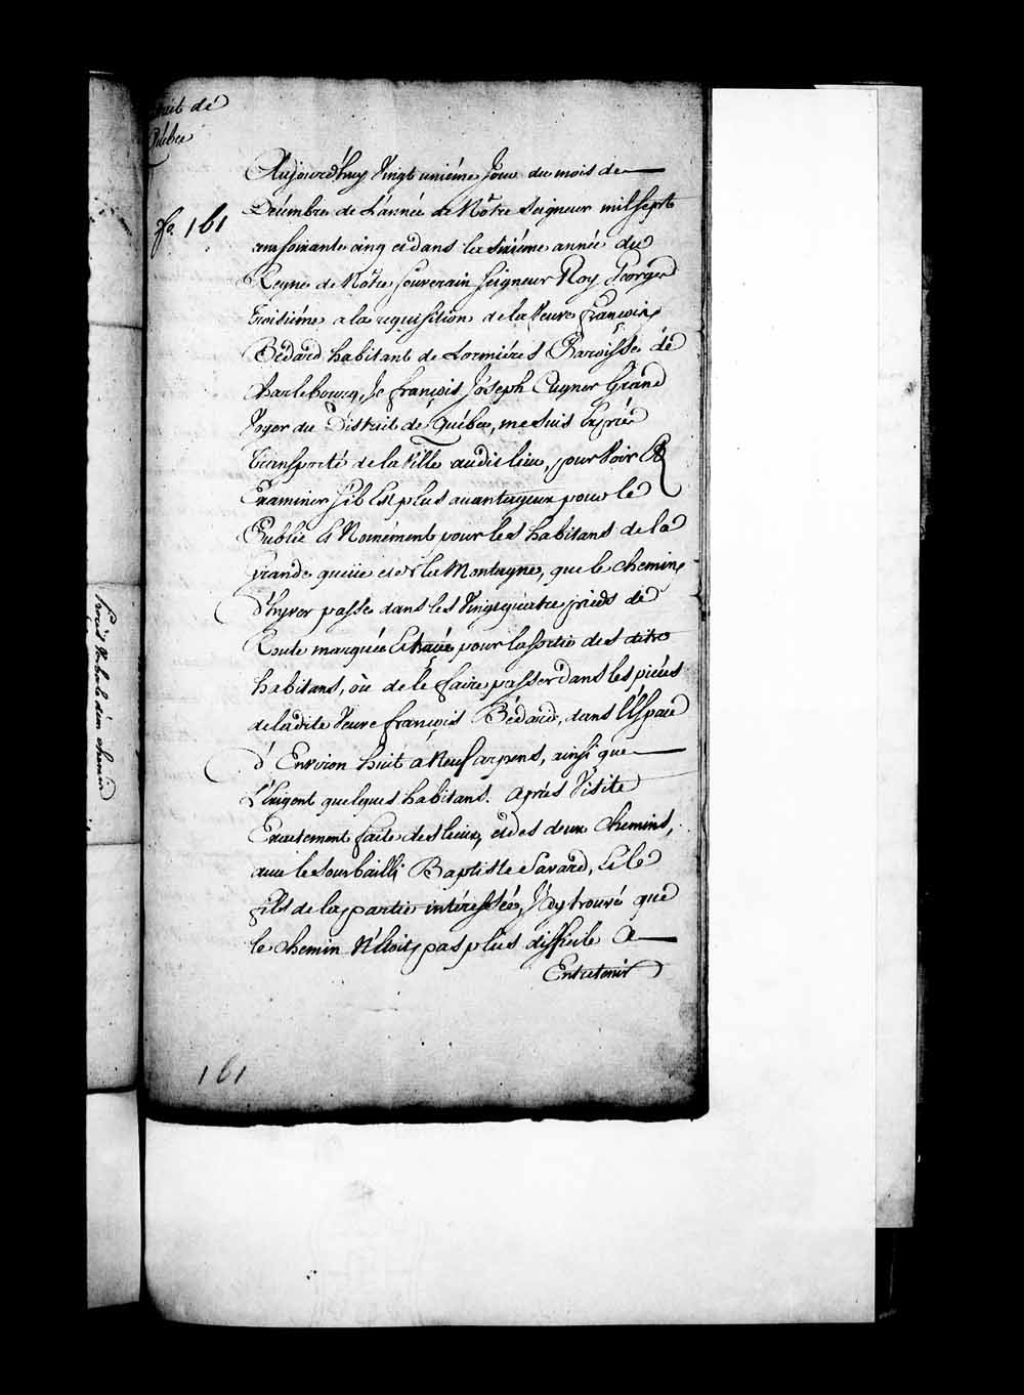 trict de
Québec
fo. 161
Aujourd'huy Vingt unième Jour du mois de
Décembre de L'année de Nôtre Seigneur mil Sept
cens soixante cinq et dans la sixième année du
Regne de Nôtre souverain seigneur Roy George
troisième a la requisition de la Veuve François
Bédard habitant de Lormiéres Paroisse de
Charlebourg, Je François Joseph Cugnet Grand
Voyer du District de Québec, me suis Exprés
transporté de la Ville audit lieu, pour Voir Et
Examiner s'il Est plus avantageux pour le
Public Et Nomément pour les habitans de la
grande queüe et de la Montagne, que le chemin
d'hyver passe dans les Vingtquatre pieds de
Route marquée Et tracée pour la sortie des dits
habitans, où de le faire passer dans les piéces
de la dite Veuve François Bédard, dans L'Espace
d'Environ huit a Neuf arpens, ainsi que
L'Exigent quelques habitans. Aprés Visite
Exactement faite des lieux, et des deux chemins,
avec le Sousbailli Baptiste Savard, Et le
fils de la partie intéressée, J'ay trouvé que
le chemin N'Etoit pas plus difficile a
Entretenir
161
Procès Verbal d'un chemin